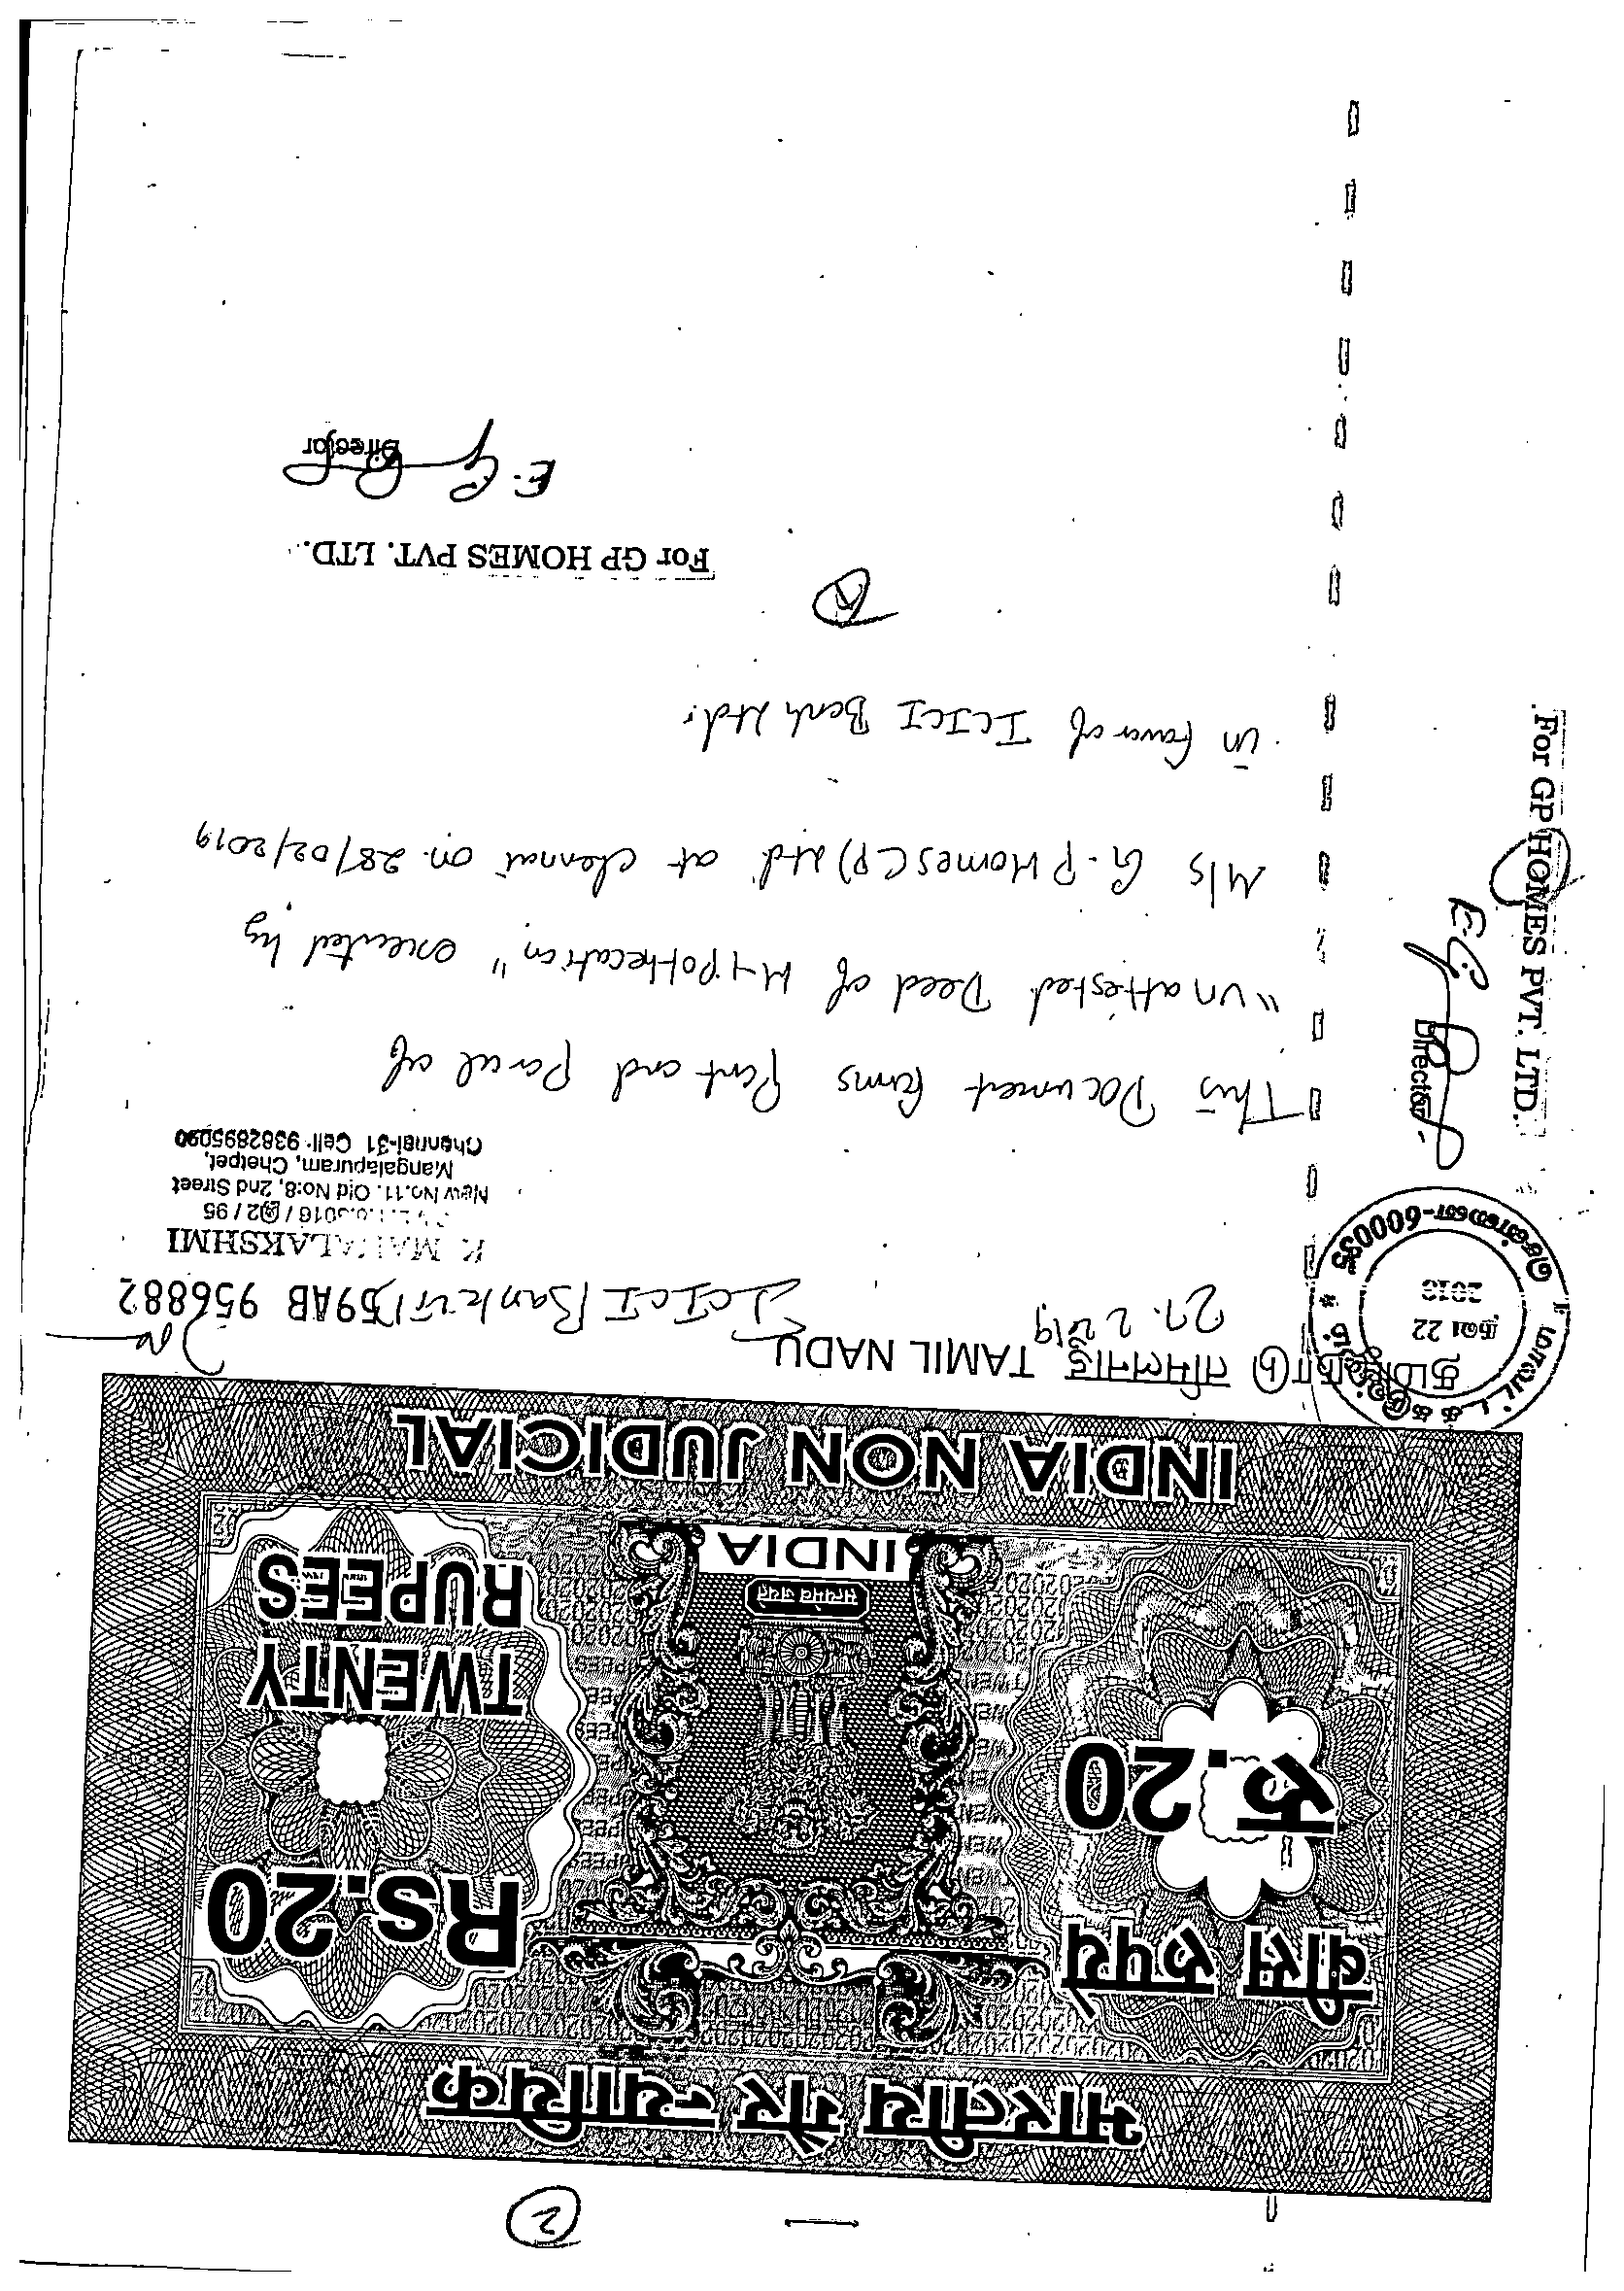 2
भारतीय गैर न्यायिक
बीस रुपये
रु.20
Rs.20
TWENTY
RUPEES
सत्यमेव जयते
INDIA
INDIA NON JUDICIAL
தமிழ்நாடு तमिलनाडु TAMIL NADU
59AB 956882
27.2.2019
ICICI Bank
K. MAHALAKSHMI
/ 95
New No.11. Old No:8, 2nd Street
Mangalapuram, Chetpet,
Chennai-31 Cell- 9382895090
22
2018
சென்னை-600035
This Document forms Part and Parcel of
"Unattested Deed of Hypothecation" executed by
M/s G.P Homes (P) Ltd. at Chennai on 28/02/2019
in favour of ICICI Bank Ltd.
For GP HOMES PVT. LTD.
Director
For GP HOMES PVT. LTD.
Director